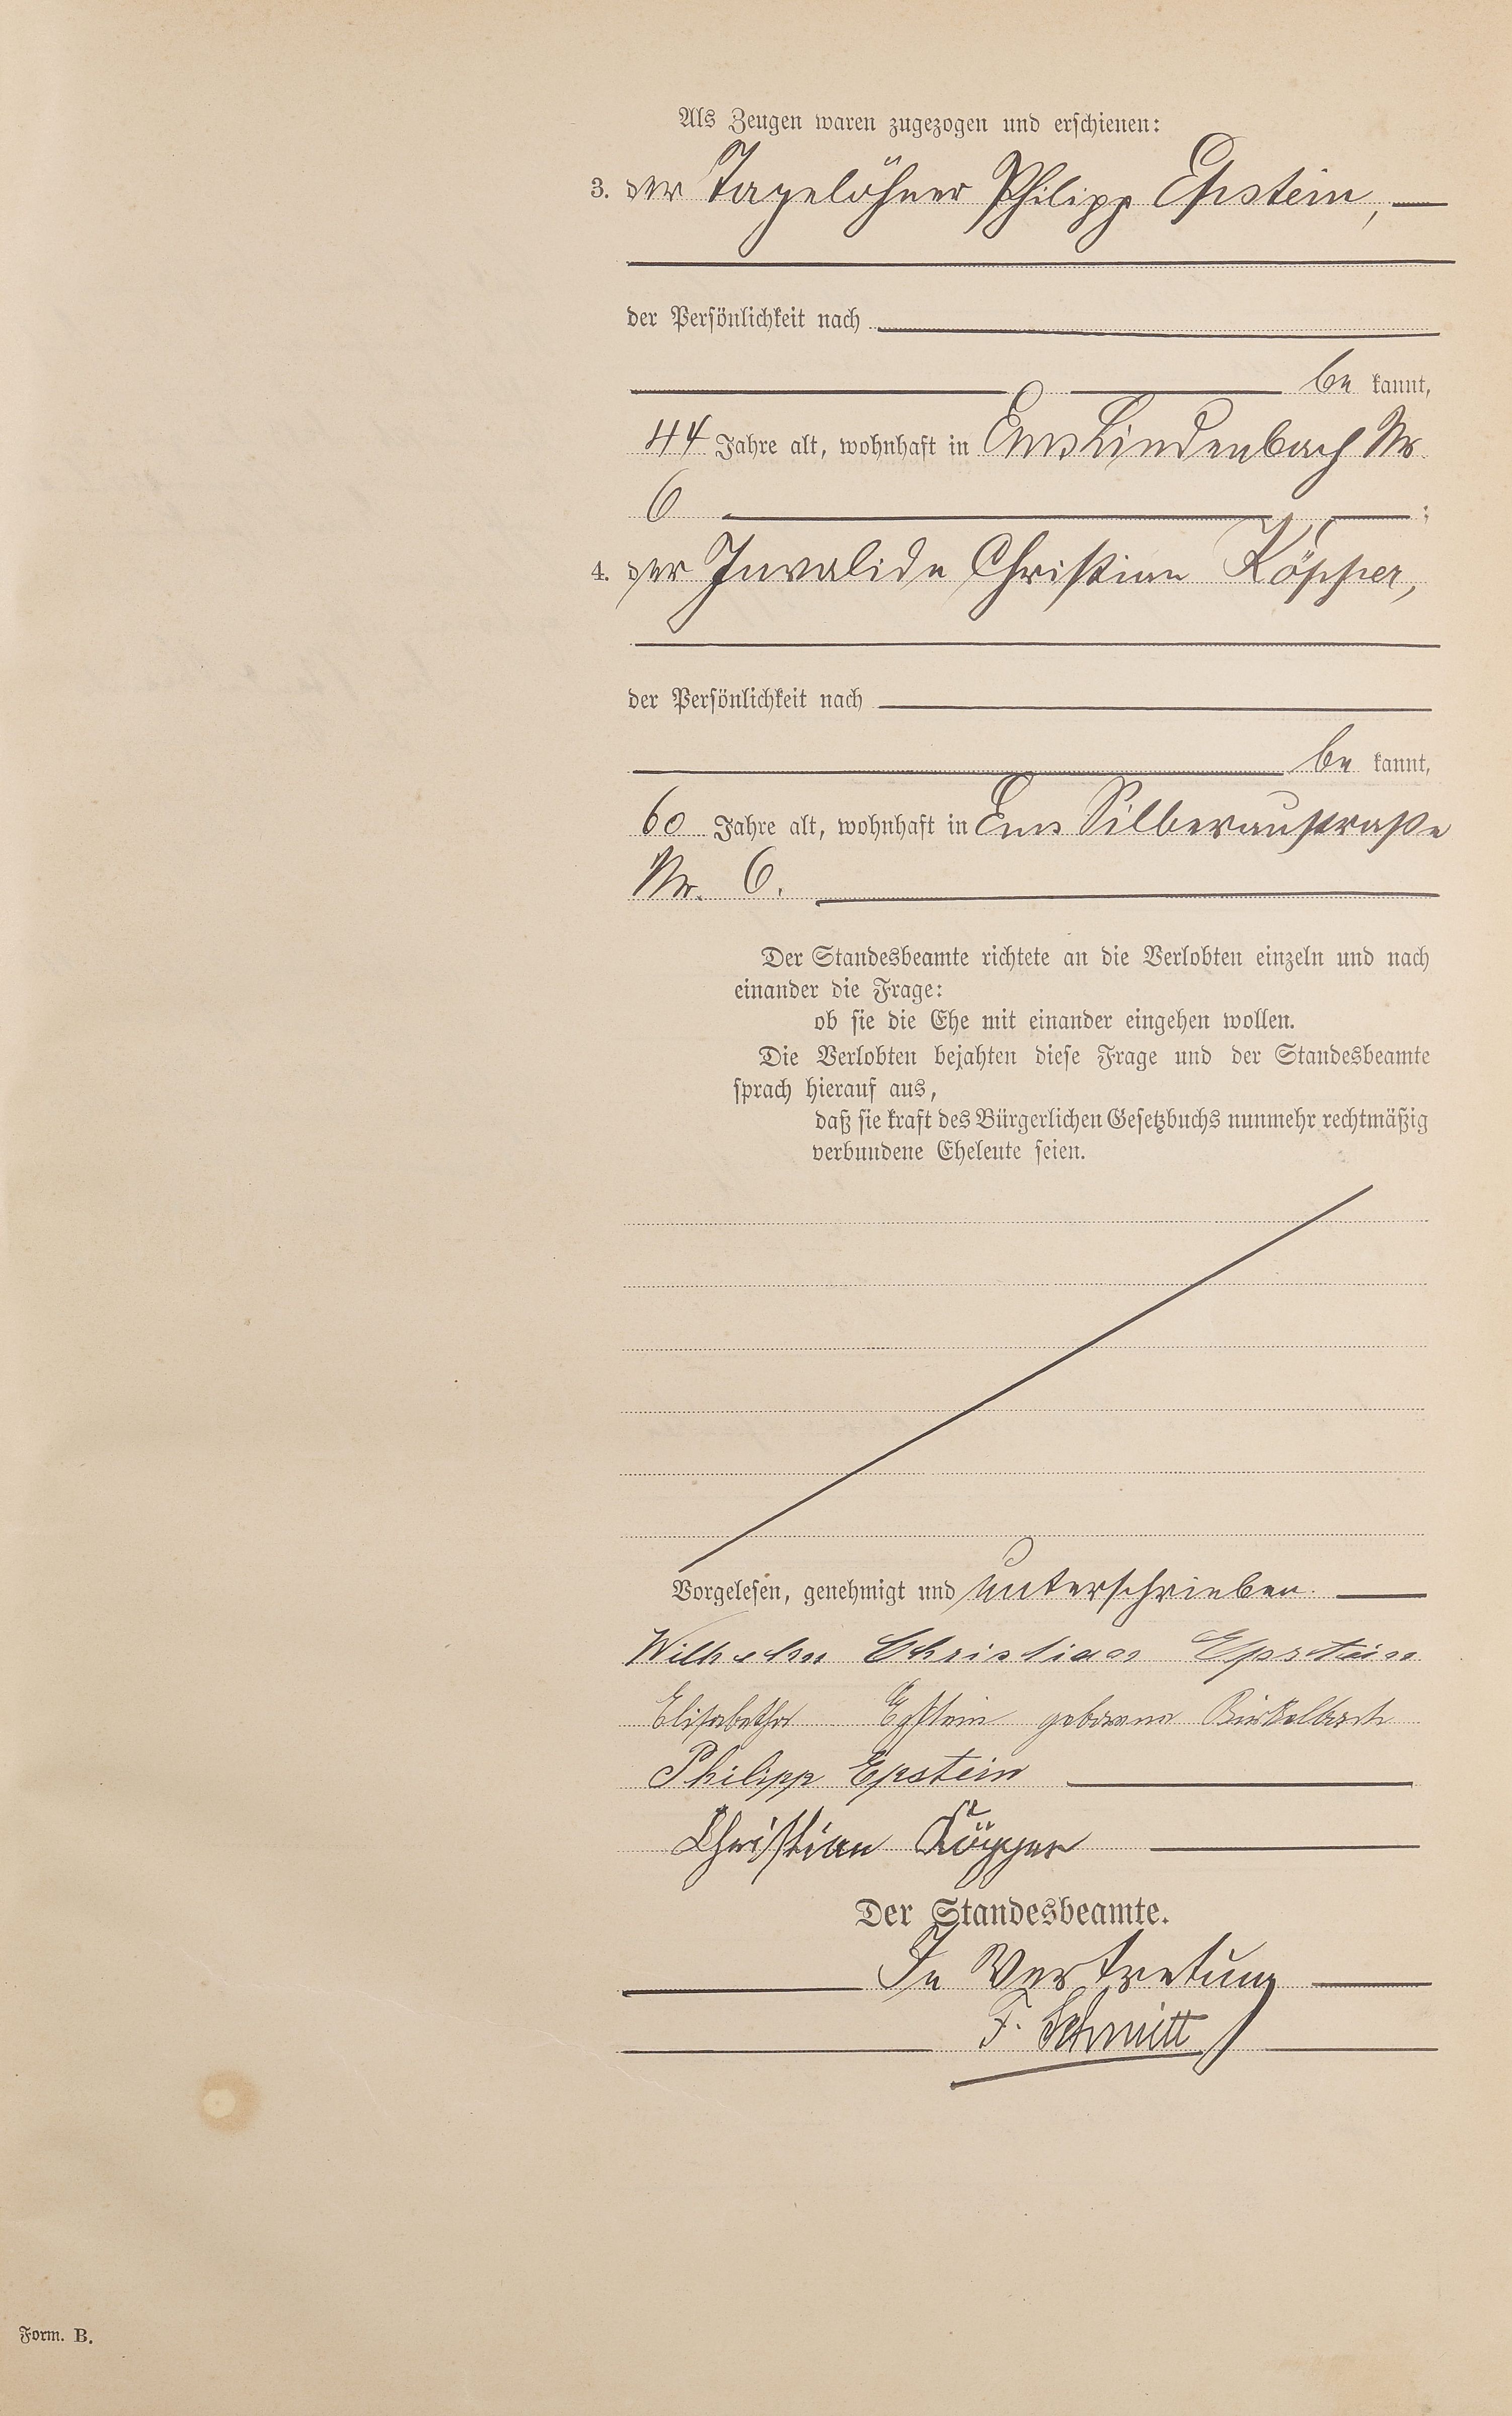 Als Zeugen waren zugezogen und erschienen:
3. der Tagelöhner Philipp Epstein,
der Persönlichkeit nach
be kannt,
44 Jahre alt, wohnhaft in Ems Lindenbach Nr
6 ;
4. der Invalide Christian Köpper,
der Persönlichkeit nach
be kannt,
60 Jahre alt, wohnhaft in Ems Silberaustraße
Nr. 6.
Der Standesbeamte richtete an die Verlobten einzeln und nach
einander die Frage:
ob sie die Ehe mit einander eingehen wollen.
Die Verlobten bejahten diese Frage und der Standesbeamte
sprach hierauf aus,
daß sie kraft des Bürgerlichen Gesetzbuchs nunmehr rechtmäßig
verbundene Eheleute seien.
Vorgelesen, genehmigt und unterschrieben.
Wilhelm Christian Epstein
Elisabetha Epstein geborene Birkelbach
Philipp Epstein
Christian Köpper
Der Standesbeamte.
In Vertretung
F. Schmitt
Form. B.